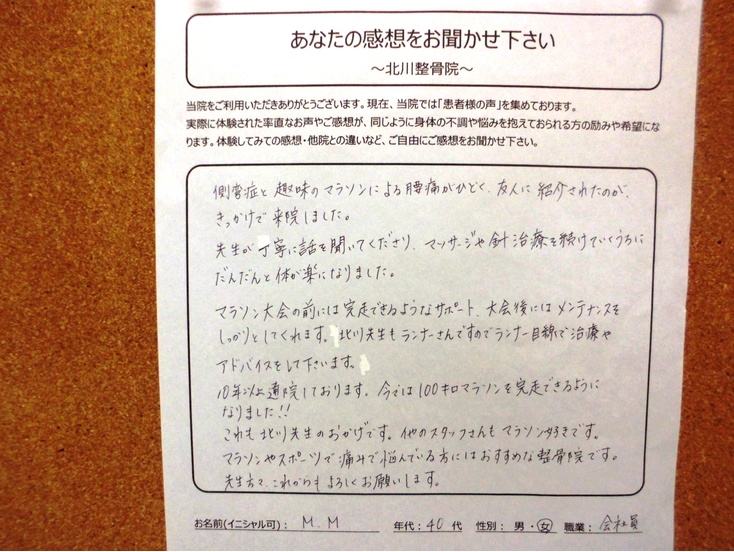 あなたの感想をお聞かせ下さい
～北川整骨院～
当院をご利用いただきありがとうございます。現在、当院では「患者様の声」を集めております。
実際に体験された率直なお声やご感想が、同じように身体の不調や悩みを抱えておられる方の励みや希望にな
ります。体験してみての感想・他院との違いなど、ご自由にご感想をお聞かせ下さい。
側弯症と趣味のマラソンによる腰痛がひどく、友人に紹介されたのが、
きっかけで来院しました。
先生が丁寧に話を聞いてくださり、マッサージや針治療を続けていくうちに
だんだんと体が楽になりました。
マラソン大会の前には完走できるようなサポート、大会後にはメンテナンスを
しっかりとしてくれます。北川先生もランナーさんですのでランナー目線で治療や
アドバイスをして下さいます。
10年以上通院しております。今では100キロマラソンを完走できるように
なりました!!
これも北川先生のおかげです。他のスタッフさんもマラソン好きです。
マラソンやスポーツで痛みで悩んでいる方にはおすすめな整骨院です。
先生方で、これからもよろしくお願いします。
お名前(イニシャル可)： M.M 年代：40 代 性別： 男・女 職業： 会社員